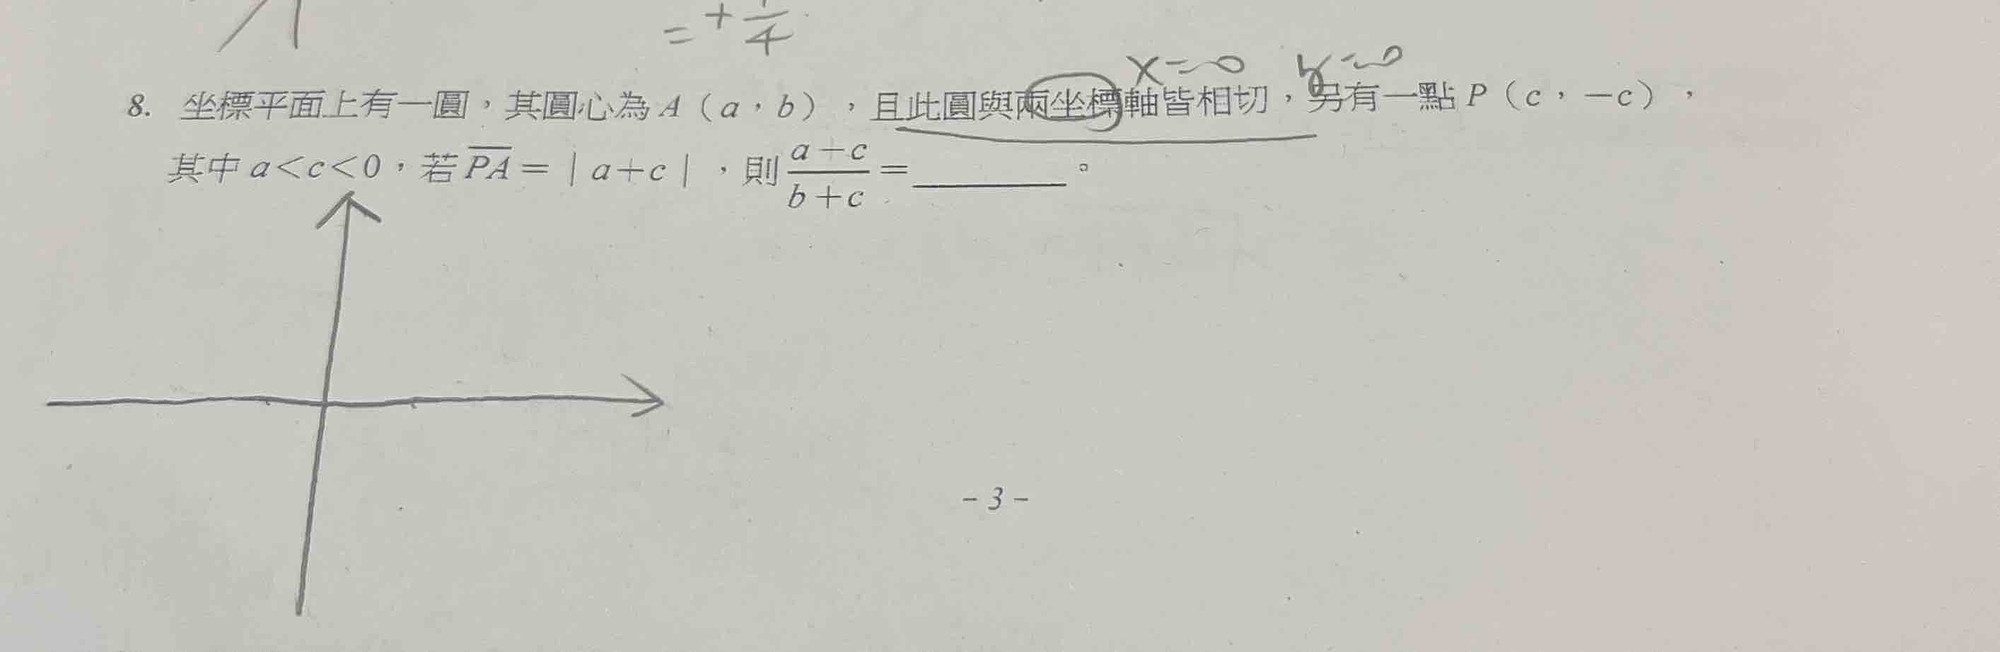 = + 1/4
x=0 y=0
8. 坐標平面上有一圓，其圓心為A（a，b），且此圓與兩坐標軸皆相切，另有一點P（c，－c），
其中a<c<0，若\overline{PA}=｜a+c｜，則\frac{a-c}{b+c}=________。
- 3 -